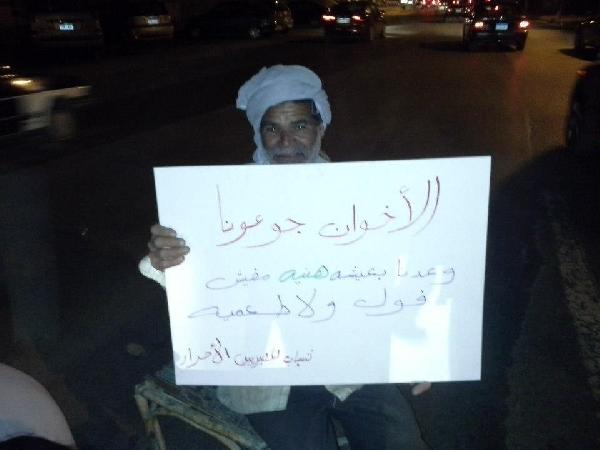 الأخوان جوعونا
وعدنا بعيشه هنيه مفيش
فول ولا طعميه
الأحرار